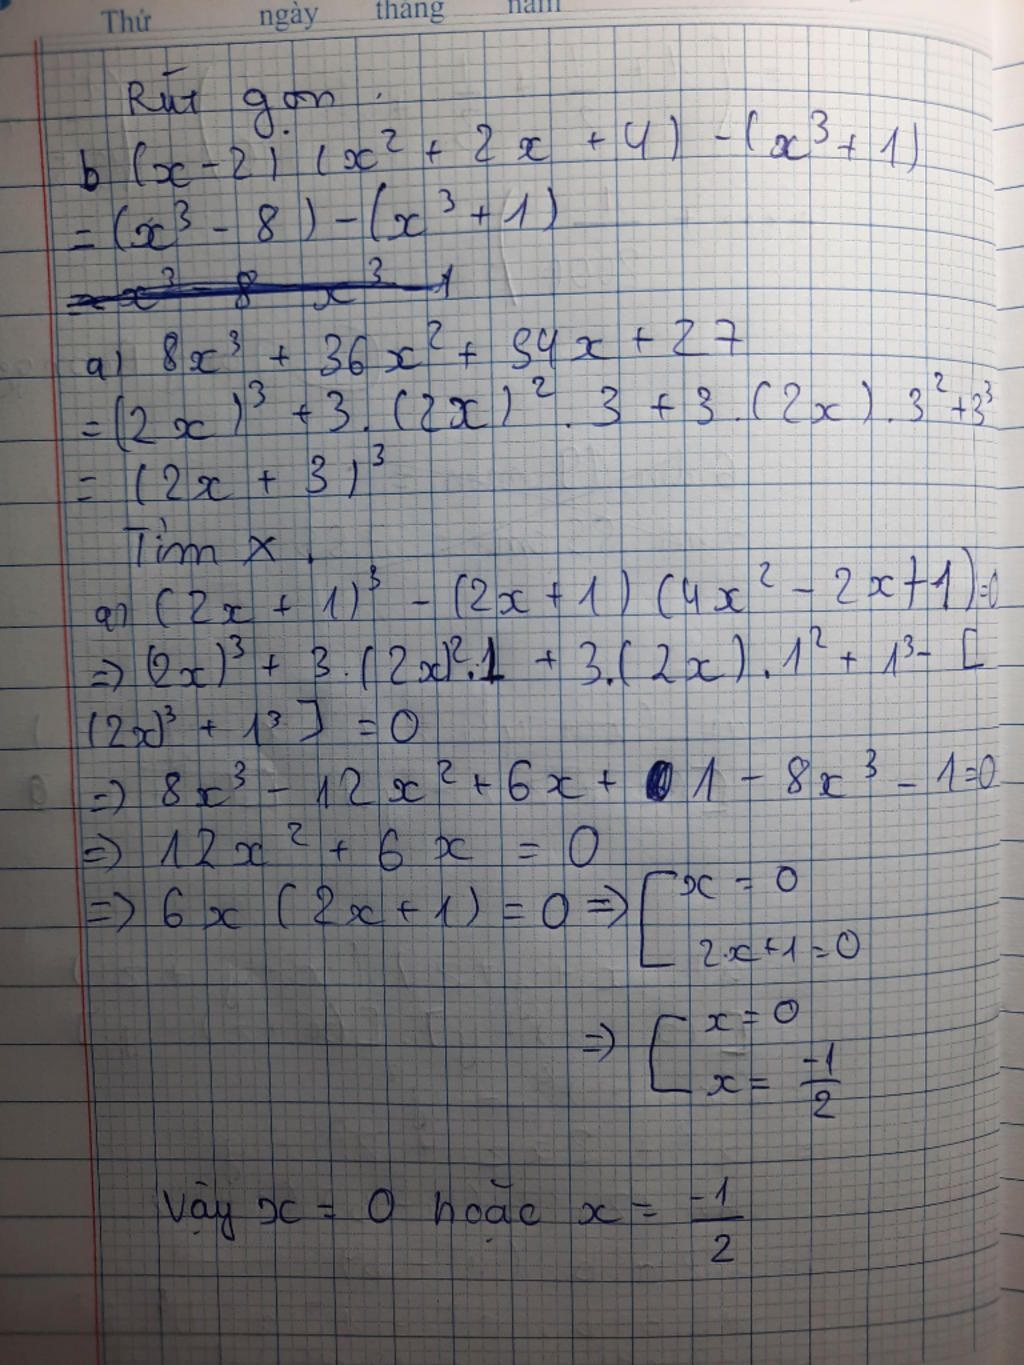 Thứ ngày tháng năm
Rút gọn.
b (x-2) (x² + 2x + 4) - (x³ + 1)
= (x³ - 8) - (x³ + 1)
a) 8x³ + 36x² + 54x + 27
= (2x)³ + 3.(2x)².3 + 3.(2x).3² + 3³
= (2x + 3)³
Tìm x.
a) (2x + 1)³ - (2x+1) (4x² - 2x + 1) = 0
=> (2x)³ + 3.(2x)².1 + 3.(2x).1² + 1³ - [
(2x)³ + 1³] = 0
=> 8x³ - 12x² + 6x + 1 - 8x³ - 1 = 0
=> 12x² + 6x = 0
=> 6x (2x+1) = 0 => [ x = 0
2x+1 = 0
=> [ x = 0
x = -1/2
Vậy x = 0 hoặc x = -1/2